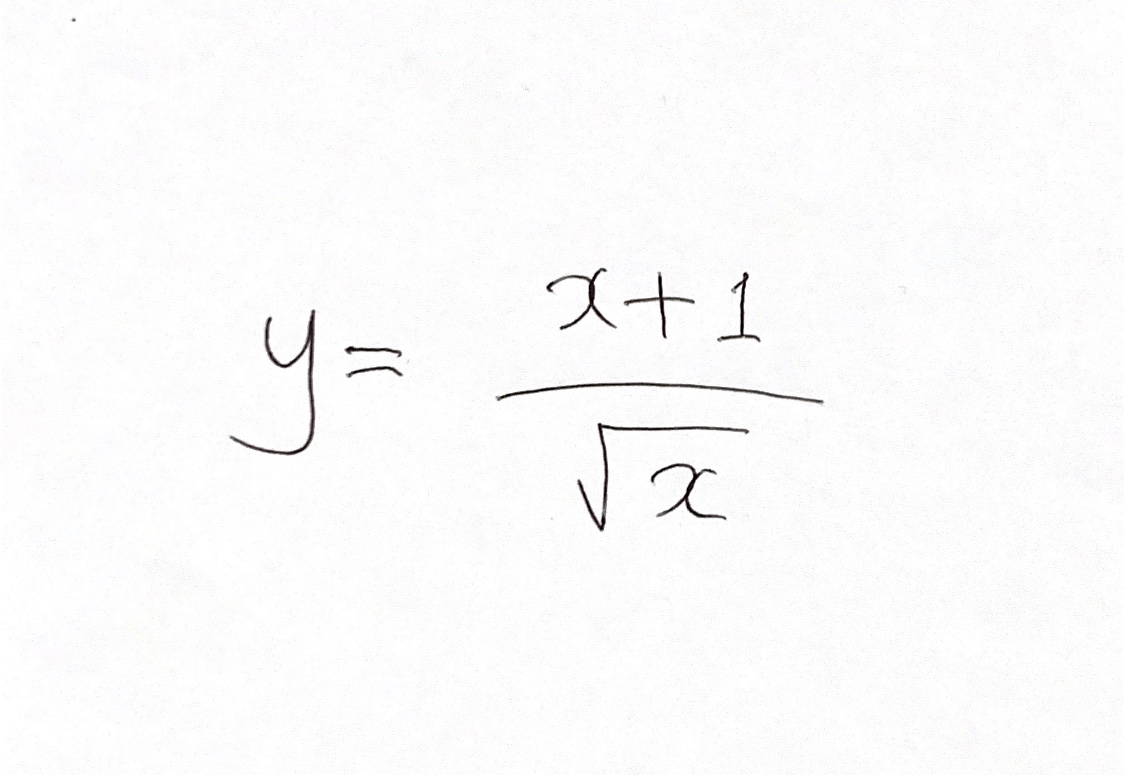 y = (x+1)/√x